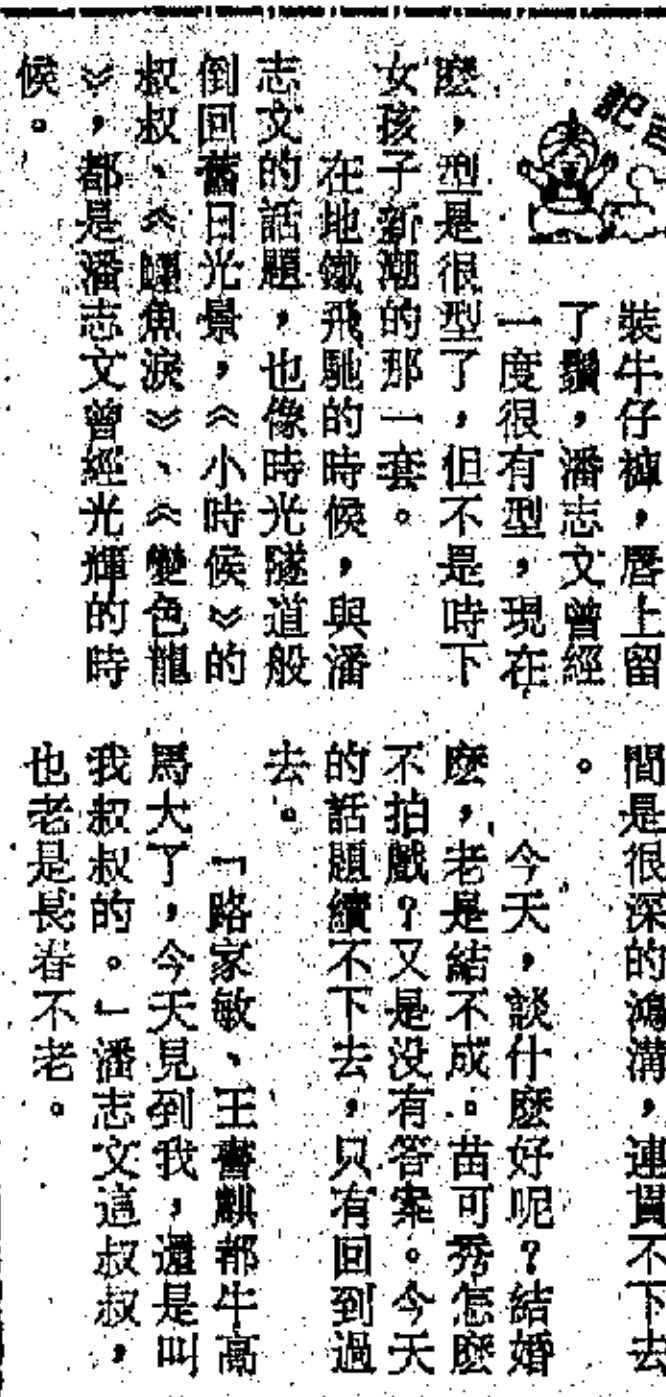 記
裝牛仔褲，唇上留
了鬚，潘志文曾經
一度很有型，現在
麽，型是很型了，但不是時下
女孩子新潮的那一套。
在地鐵飛馳的時候，與潘
志文的話題，也像時光隧道般
倒回舊日光景，《小時候》的
叔叔、《鱷魚淚》、《變色龍
》，都是潘志文曾經光輝的時
候。
間是很深的鴻溝，連貫不下去
。
今天，談什麽好呢？結婚
麽，老是結不成。苗可秀怎麽
不拍戲？又是没有答案。今天
的話題續不下去，只有回到過
去。
「路家敏、王書麒都牛高
馬大了，今天見到我，還是叫
我叔叔的。」潘志文這叔叔，
也老是長春不老。